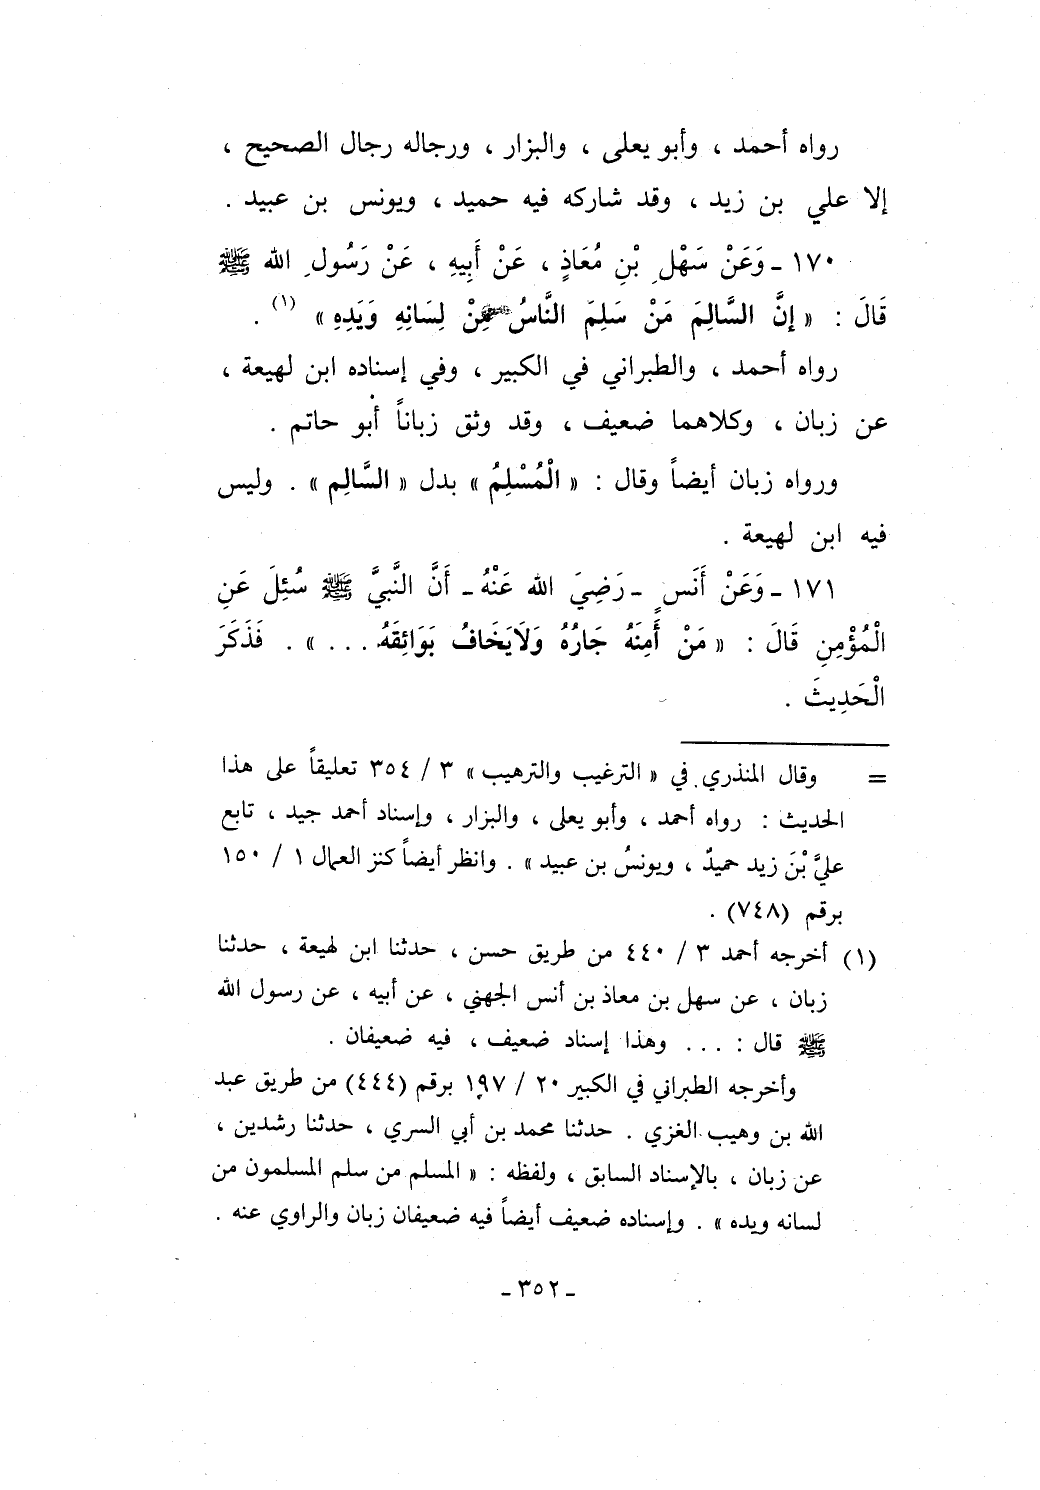 رواه أحمد ، وأبو يعلى ، والبزار ، ورجاله رجال الصحيح ،
إلا علي بن زيد ، وقد شاركه فيه حميد ، ويونس بن عبيد .
١٧٠ ـ وَعَنْ سَهْلِ بْنِ مُعَاذٍ ، عَنْ أَبِيهِ ، عَنْ رَسُولِ الله ﷺ
قَالَ : « إنَّ السَّالِمَ مَنْ سَلِمَ النَّاسُ مِنْ لِسَانِهِ وَيَدِهِ » (١) .
رواه أحمد ، والطبراني في الكبير ، وفي إسناده ابن لهيعة ،
عن زبان ، وكلاهما ضعيف ، وقد وثق زباناً أبو حاتم .
ورواه زبان أيضاً وقال : « الْمُسْلِمُ » بدل « السَّالِم » . وليس
فيه ابن لهيعة .
١٧١ ـ وَعَنْ أَنَسٍ ـ رَضِيَ الله عَنْهُ ـ أَنَّ النَّبِيَّ ﷺ سُئِلَ عَنِ
الْمُؤْمِنِ قَالَ : « مَنْ أَمِنَهُ جَارُهُ وَلَايَخَافُ بَوَائِقَهُ . . . » . فَذَكَرَ
الْحَدِيثَ .
= وقال المنذري في « الترغيب والترهيب » ٣ / ٣٥٤ تعليقاً على هذا
الحديث : رواه أحمد ، وأبو يعلى ، والبزار ، وإسناد أحمد جيد ، تابع
عليَّ بْنَ زيد حميدٌ ، ويونسُ بن عبيد » . وانظر أيضاً كنز العمال ١ / ١٥٠
برقم (٧٤٨) .
(١) أخرجه أحمد ٣ / ٤٤٠ من طريق حسن ، حدثنا ابن لهيعة ، حدثنا
زبان ، عن سهل بن معاذ بن أنس الجهني ، عن أبيه ، عن رسول الله
ﷺ قال : . . . وهذا إسناد ضعيف ، فيه ضعيفان .
وأخرجه الطبراني في الكبير ٢٠ / ١٩٧ برقم (٤٤٤) من طريق عبد
الله بن وهيب الغزي . حدثنا محمد بن أبي السري ، حدثنا رشدين ،
عن زبان ، بالإسناد السابق ، ولفظه : « المسلم من سلم المسلمون من
لسانه ويده » . وإسناده ضعيف أيضاً فيه ضعيفان زبان والراوي عنه .
ـ ٣٥٢ ـ